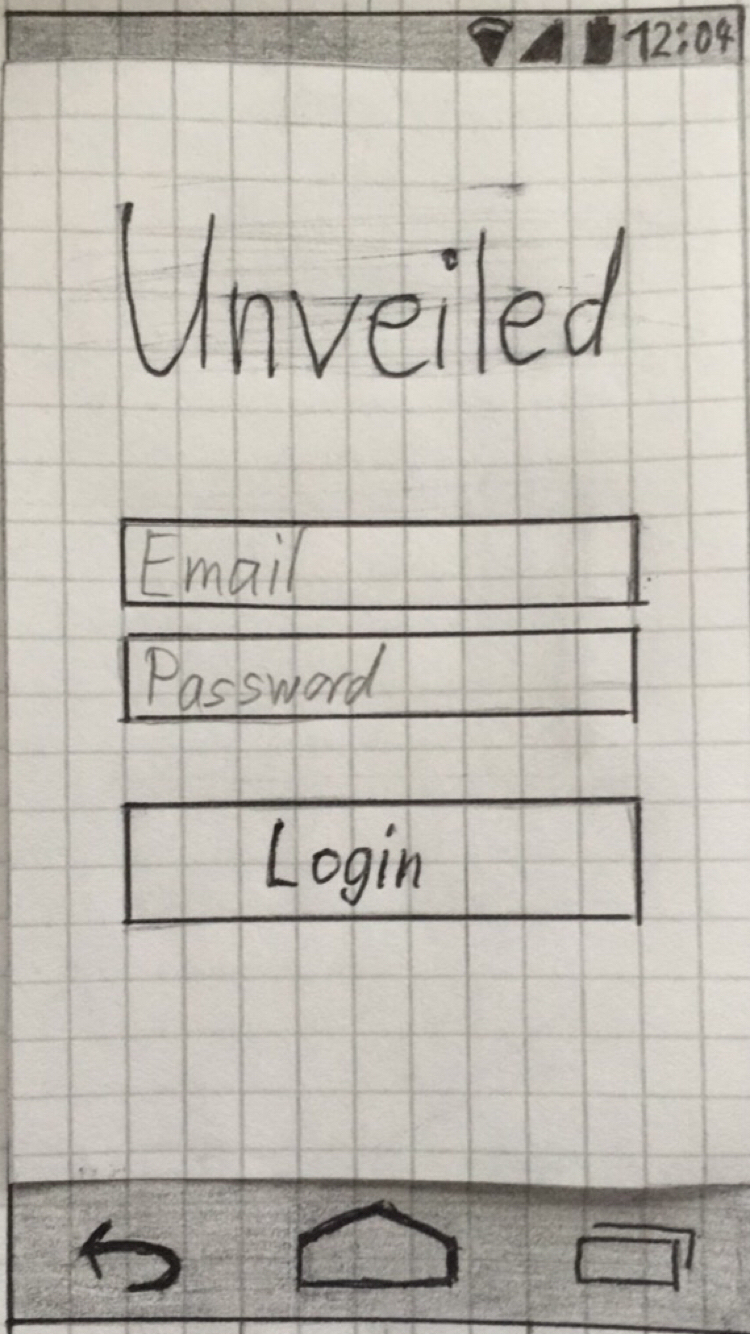 12:04
Unveiled
Email
Password
Login